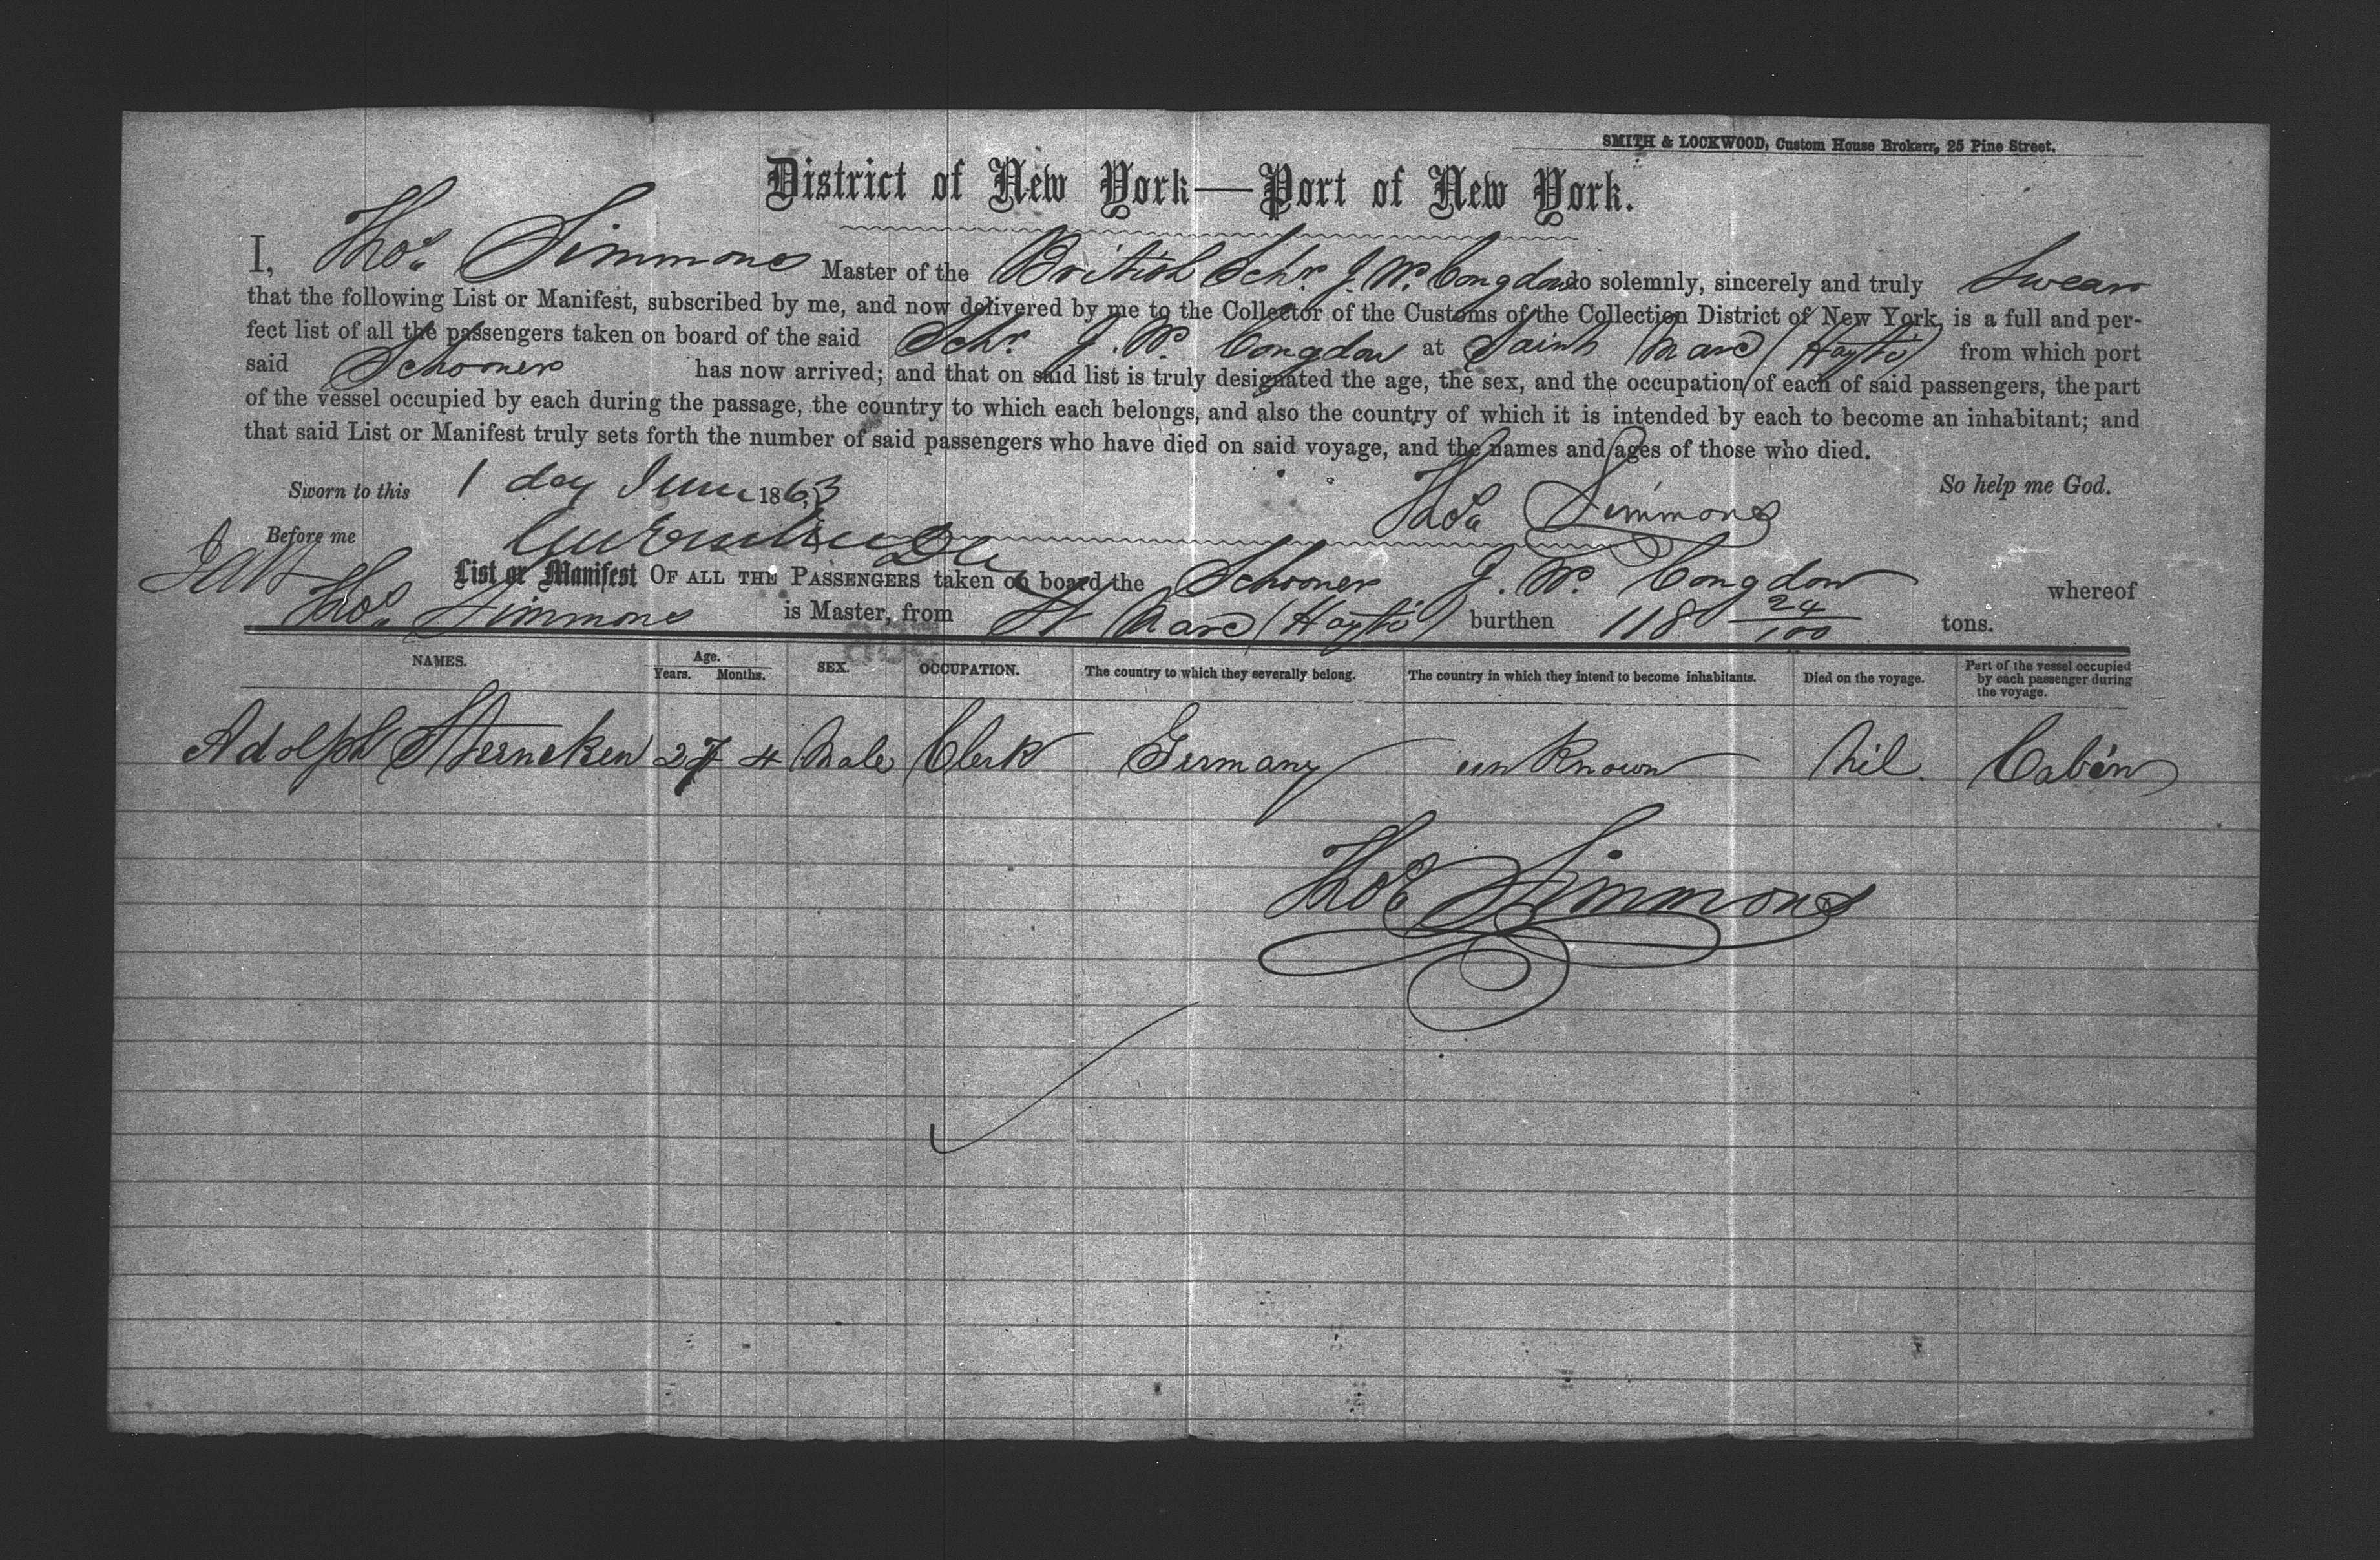 SMITH & LOCKWOOD, Custom House Brokers, 25 Pine Street.
District of New York—Port of New York.
I, Thos. Simmons Master of the British Schr. J. W. Congdon do solemnly, sincerely and truly Swear
that the following List or Manifest, subscribed by me, and now delivered by me to the Collector of the Customs of the Collection District of New York, is a full and per-
fect list of all the passengers taken on board of the said Schr. J. W. Congdon at Saint Marc (Hayti) from which port
said Schooner has now arrived; and that on said list is truly designated the age, the sex, and the occupation of each of said passengers, the part
of the vessel occupied by each during the passage, the country to which each belongs, and also the country of which it is intended by each to become an inhabitant; and
that said List or Manifest truly sets forth the number of said passengers who have died on said voyage, and the names and ages of those who died.
Sworn to this 1 day June 1863 Thos Simmons So help me God.
Before me
List or Manifest OF ALL THE PASSENGERS taken on board the Schooner J. W. Congdon whereof
Thos. Simmons is Master, from St Marc (Hayti) burthen 118 24/100 tons.
NAMES. Age. Years. Months. SEX. OCCUPATION. The country to which they severally belong. The country in which they intend to become inhabitants. Died on the voyage. Part of the vessel occupied by each passenger during the voyage.
Adolph Sterneken 27 4 Male Clerk Germany unknown Nil. Cabin
Thos Simmons